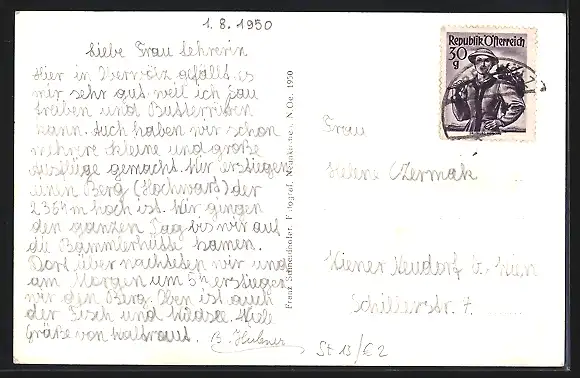 1. 8. 1950
Liebe Frau Lehrerin
Hier in Oberwölz gefällt es
mir sehr gut weil ich
treiben und
kann. Auch haben wir schon
mehrere kleine und große
Ausflüge gemacht. Wir erstiegen
einen Berg (Hochwart) der
2301m hoch ist. Wir gingen
den ganzen Tag bis wir auf
die kamen.
Dort über nachteten wir und
am Morgen um 5h erstiegen
wir den Berg. Oben ist auch
der Tisch und Viele
Grüße von Waltraut. B. Hubner
Franz Schneehofer, Fotograf, Neunkirchen, N.Oe. 1950
Republik Österreich
30
g
Frau
Helene Czermak
Wiener Neudorf b. Wien
Schillerstr. 7.
St 13/€ 2